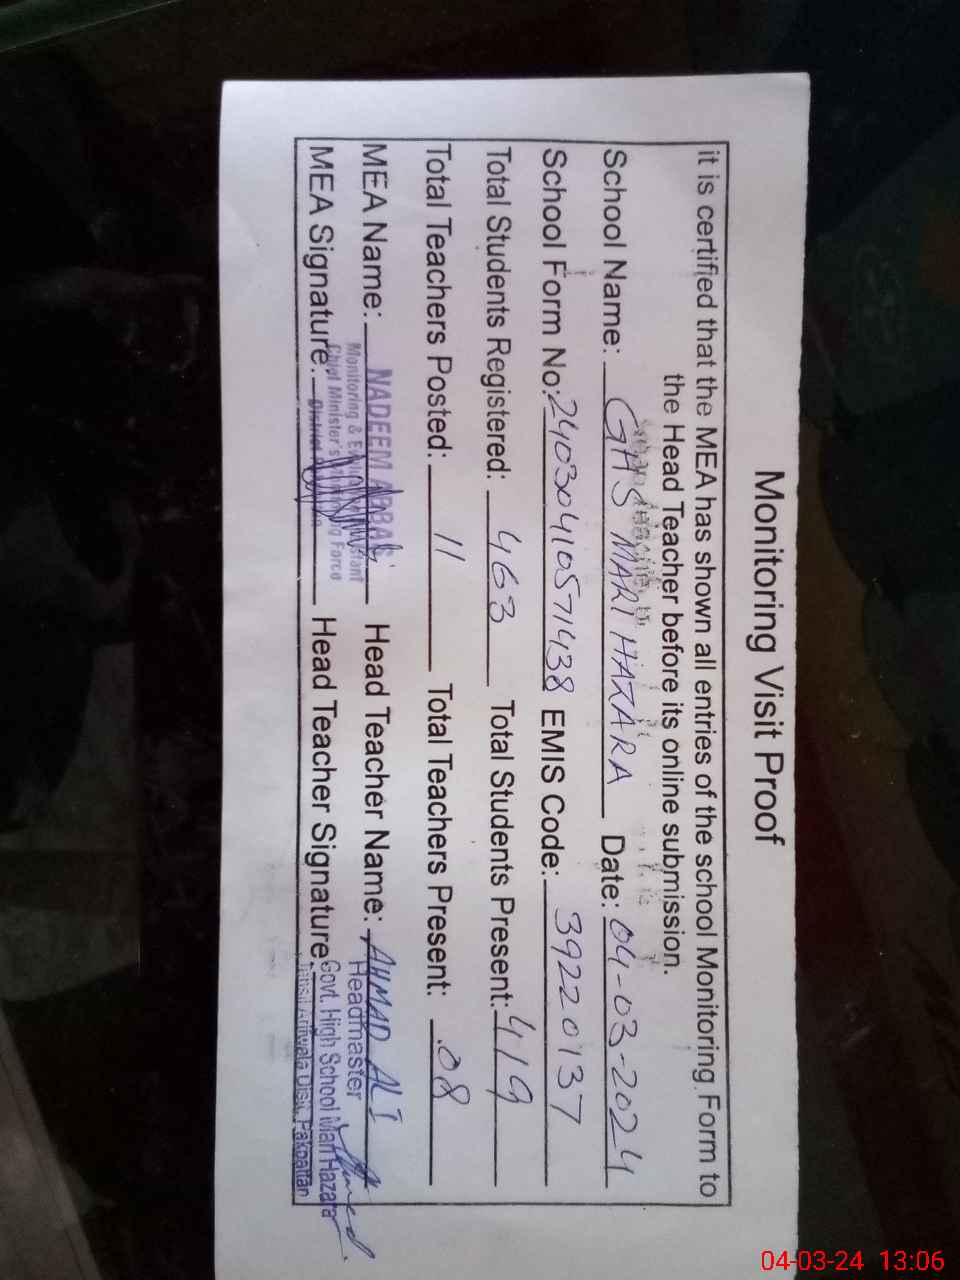 Monitoring Visit Proof
it is certified that the MEA has shown all entries of the school Monitoring Form to
the Head Teacher before its online submission.
School Name: GHS MARI HAZARA Date: 04-03-2024
School Form No: 24030410571438 EMIS Code: 39220137
Total Students Registered: 463 Total Students Present: 419
Total Teachers Posted: 11 Total Teachers Present: 08
MEA Name: NADEEM ABBAS Head Teacher Name: AHMAD ALI
Monitoring & Headmaster
MEA Signature: Head Teacher Signature:
Chief Minister's Monitoring Force Govt. High School Mari Hazara
District Tehsil Arifwala Distt. Pakpattan
04-03-24 13:06